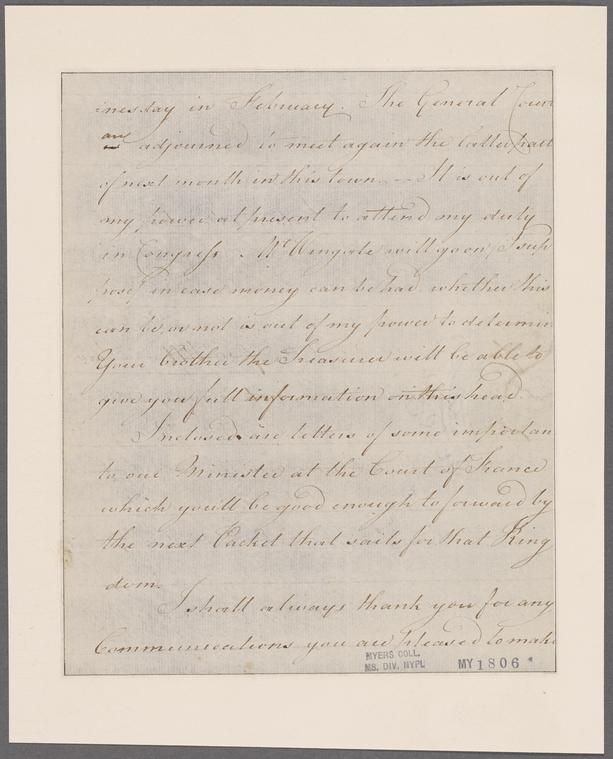 inesday in February. The General Cour
are
adjourned to meet again the latter part
of next month in this town. — It is out of
my power at present to attend my duty
in Congress. Mr Wingate will go on, I sup
pose, in case money can be had. whether this
can be, or not is out of my power to determin
Your brother the Treasurer will be able to
give you full information on this head.
Inclosed are letters of some importan
to our Minister at the Court of France
which you'll be good enough to forward by
the next Packet that sails for that King
dom.
I shall always thank you for any
Communications you are pleased to make
MYERS COLL.
MS. DIV. NYPL
MY 1806